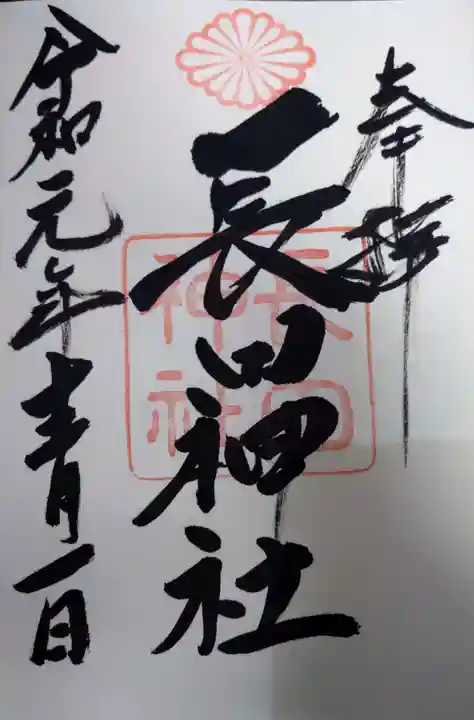 奉拝
長田神社
長田
神社
令和元年十二月一日